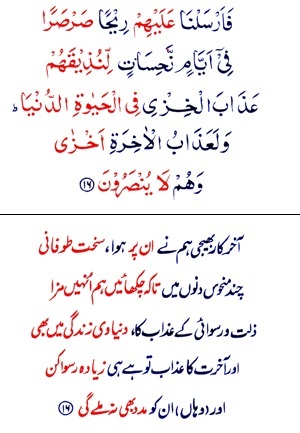 فَاَرْسَلْنَا عَلَيْهِمْ رِيْحًا صَرْصَرًا
فِيْۤ اَيَّامٍ نَّحِسَاتٍ لِّنُذِيْقَهُمْ
عَذَابَ الْخِزْيِ فِي الْحَيٰوةِ الدُّنْيَا ؕ
وَلَعَذَابُ الْاٰخِرَةِ اَخْزٰى
وَهُمْ لَا يُنْصَرُوْنَ ﴿۱۶﴾
آخر کار بھیجی ہم نے ان پر ہوا، سخت طوفانی
چند منحوس دنوں میں تاکہ چکھائیں ہم انہیں مزا
ذلت و رسوائی کے عذاب کا، دنیاوی زندگی میں بھی
اور آخرت کا عذاب تو ہے ہی زیادہ رسوا کن
اور (وہاں) ان کو مدد بھی نہ ملے گی ﴿۱۶﴾